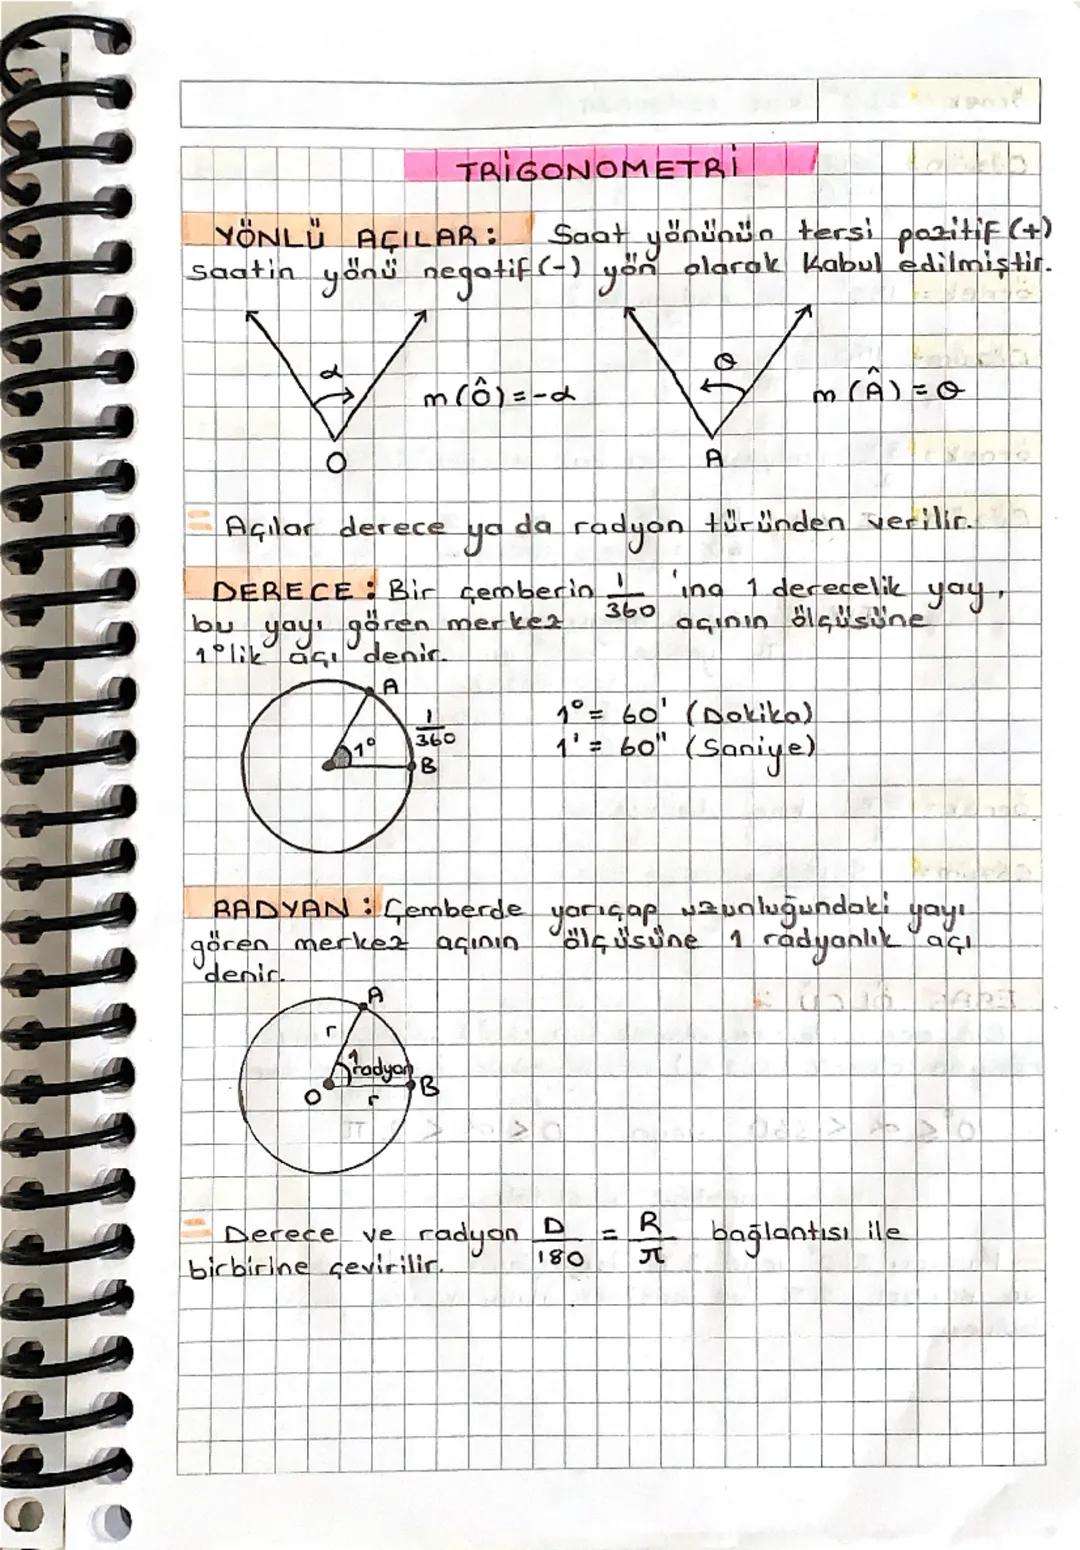 TRİGONOMETRİ
YÖNLÜ AÇILAR: Saat yönünün tersi pozitif (+)
saatin yönü negatif (-) yön olarak kabul edilmiştir.
α
m(Ô)=-α
O
θ
m(Â)=θ
A
Açılar derece ya da radyan türünden verilir.
DERECE: Bir çemberin 1/360 'ına 1 derecelik yay,
bu yayı gören merkez açının ölçüsüne
1°lik açı denir.
A
1°
1/360
B
1° = 60' (Dakika)
1' = 60" (Saniye)
RADYAN: Çemberde yarıçap uzunluğundaki yayı
gören merkez açının ölçüsüne 1 radyanlık açı
denir.
A
r
1 radyan
O
r
B
Derece ve radyan D/180 = R/π bağlantısı ile
birbirine çevirilir.